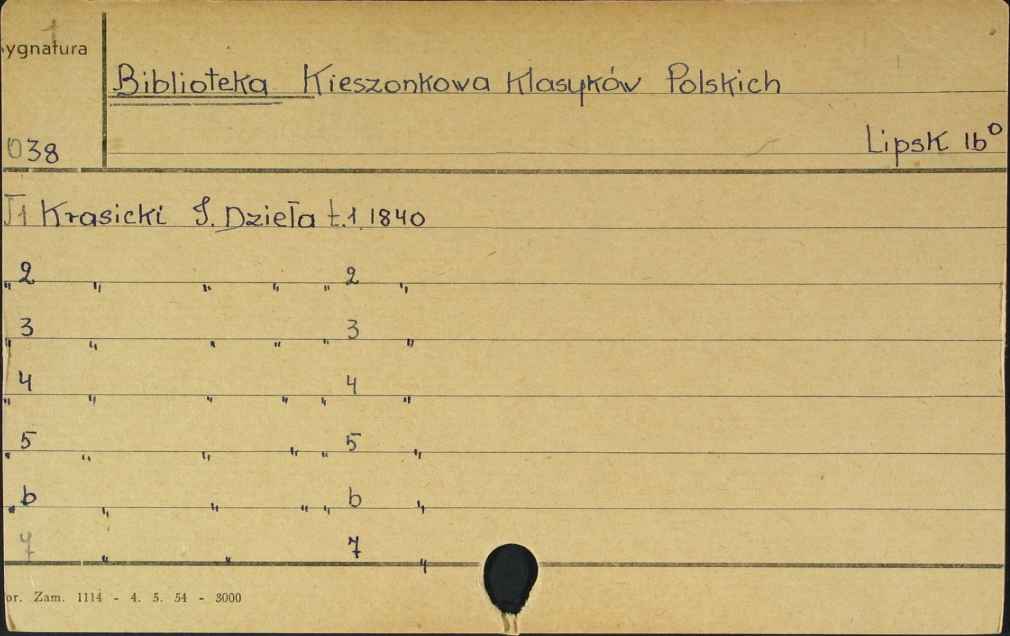 1
ygnatura
Biblioteka Kieszonkowa Klasyków Polskich
038
Lipsk 16⁰
T1 Krasicki I. Dzieła t.1 1840
" 2 " " " " 2 "
" 3 " " " " 3 "
" 4 " " " " 4 "
" 5 " " " " 5 "
" 6 " " " " 6 "
7 " " 7 "
or. Zam. 1114 - 4. 5. 54 - 3000